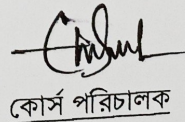 কোর্স পরিচালক